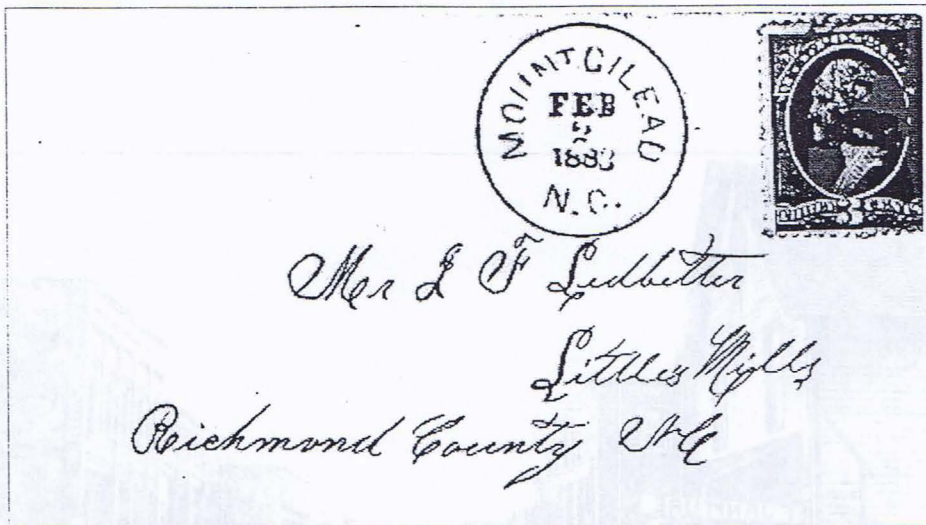 MOUNT GILEAD
FEB
2
1883
N.C.
Mr J F Ledbetter
Littles Mills
Richmond County NC